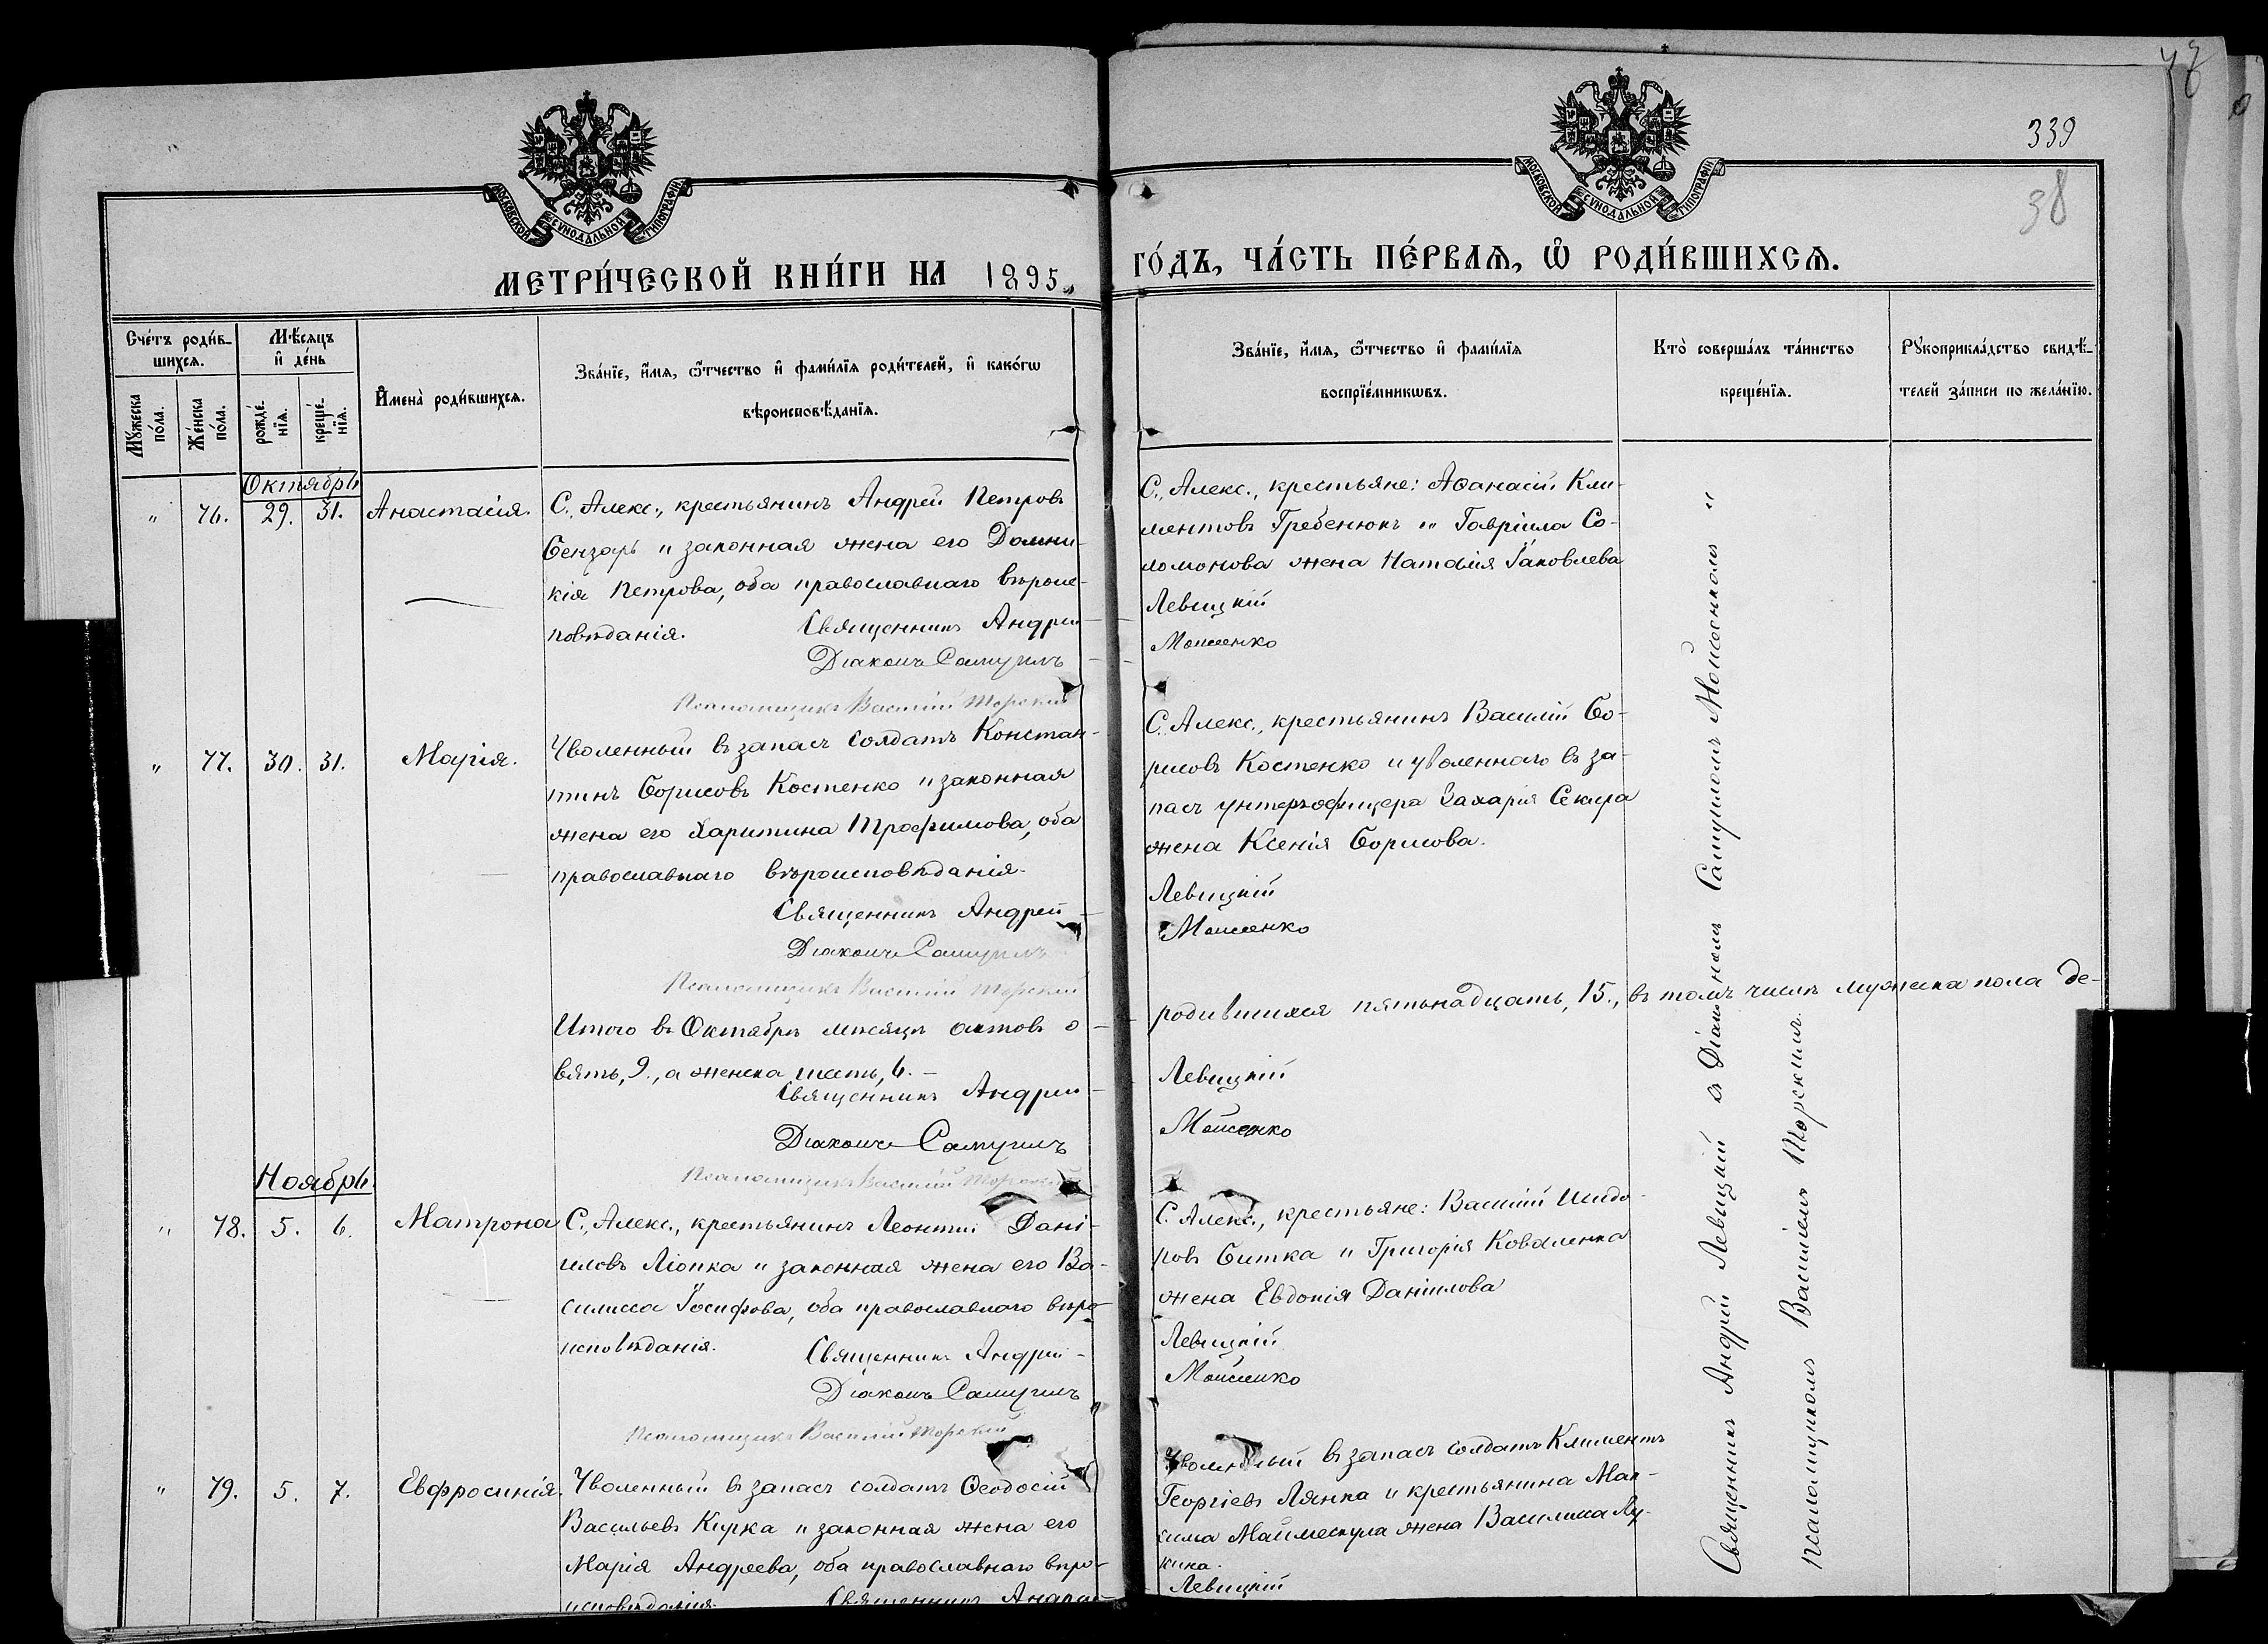 48
339
38
МОСКОВСКОЙ СѴНОДАЛЬНОЙ ТИПОГРАФІИ
МОСКОВСКОЙ СѴНОДАЛЬНОЙ ТИПОГРАФІИ
МЕТРИ́ЧЕСКОЙ КНИ́ГИ НА 1895 ГО́ДЪ, ЧА́СТЬ ПЕ́РВАѦ, Ѡ҆ РОДИ́ВШИХСѦ.
Сче́тъ роди́в-
шихсѧ.
Мꙋ́жеска по́ла.
Же́нска по́ла.
Мѣ́сѧцъ
и҆ де́нь
рожде́-
нїѧ.
креще́-
нїѧ.
И҆мена̀ роди́вшихсѧ.
Зва́нїе, и҆́мѧ, ѻ҆́тчество и҆ фами́лїѧ роди́телей, и҆ како́гѡ
вѣроисповѣ́данїѧ.
Зва́нїе, и҆́мѧ, ѻ҆́тчество и҆ фами́лїѧ
воспрїе́мникѡвъ.
Кто̀ соверша́лъ та́инство
креще́нїѧ.
Рꙋкоприкла́дство свидѣ́-
телей за́писи по жела́нїю.
Октябрь
" 76. 29. 31. Анастасія.
С. Алекс., крестьянинъ Андрей Петровъ
Бензарь и законная жена его Домни-
кія Петрова, оба православнаго вѣроис-
повѣданія. Священникъ Андрей
Діаконъ Самуилъ
Псаломщикъ Василій Торскій
С. Алекс., крестьяне: Аѳанасій Кли-
ментовъ Гребенюкъ и Гавріила Со-
ломонова жена Наталія Іаковлева
Левицкій
Моисеенко
" 77. 30. 31. Марія.
Уволенный въ запасъ солдатъ Констан-
тинъ Борисовъ Костенко и законная
жена его Харитина Трофимова, оба
православнаго вѣроисповѣданія.
Священникъ Андрей
Діаконъ Самуилъ
Псаломщикъ Василій Торскій
С. Алекс., крестьянинъ Василій Бо-
рисовъ Костенко и уволеннаго въ за-
пасъ унтеръ-офицера Захарія Секира
жена Ксенія Борисова.
Левицкій
Моисеенко
Итого въ Октябрѣ мѣсяцѣ актовъ о родившихся пятьнадцать, 15., въ томъ числѣ мужеска пола де-
вять, 9., а женска шесть, 6. –
Священникъ Андрей Левицкій
Діаконъ Самуилъ Моисеенко
Псаломщикъ Василій Торскій
Ноябрь.
" 78. 5. 6. Матрона
С. Алекс., крестьянинъ Леонтій Дані-
иловъ Ліопка и законная жена его Ва-
силисса Іосифова, оба православнаго вѣро-
исповѣданія. Священникъ Андрей
Діаконъ Самуилъ
Псаломщикъ Василій Торскій
С. Алекс., крестьяне: Василій Исидо-
ровъ Битка и Григорія Коваленка
жена Евдокія Даніилова
Левицкій
Моисеенко
" 79. 5. 7. Евфросинія.
Уволенный въ запасъ солдатъ Ѳеодосій
Васильевъ Кирка и законная жена его
Марія Андреева, оба православнаго вѣро-
исповѣданія. Священникъ Андрей
Уволенный въ запасъ солдатъ Климентъ
Георгіевъ Лянка и крестьянина Мак-
сима Маймескула жена Василиса Лу-
кина.
Левицкій
Священникъ Андрей Левицкій съ Діакономъ Самуиломъ Моисеенкомъ и
псаломщикомъ Василіемъ Торскимъ.